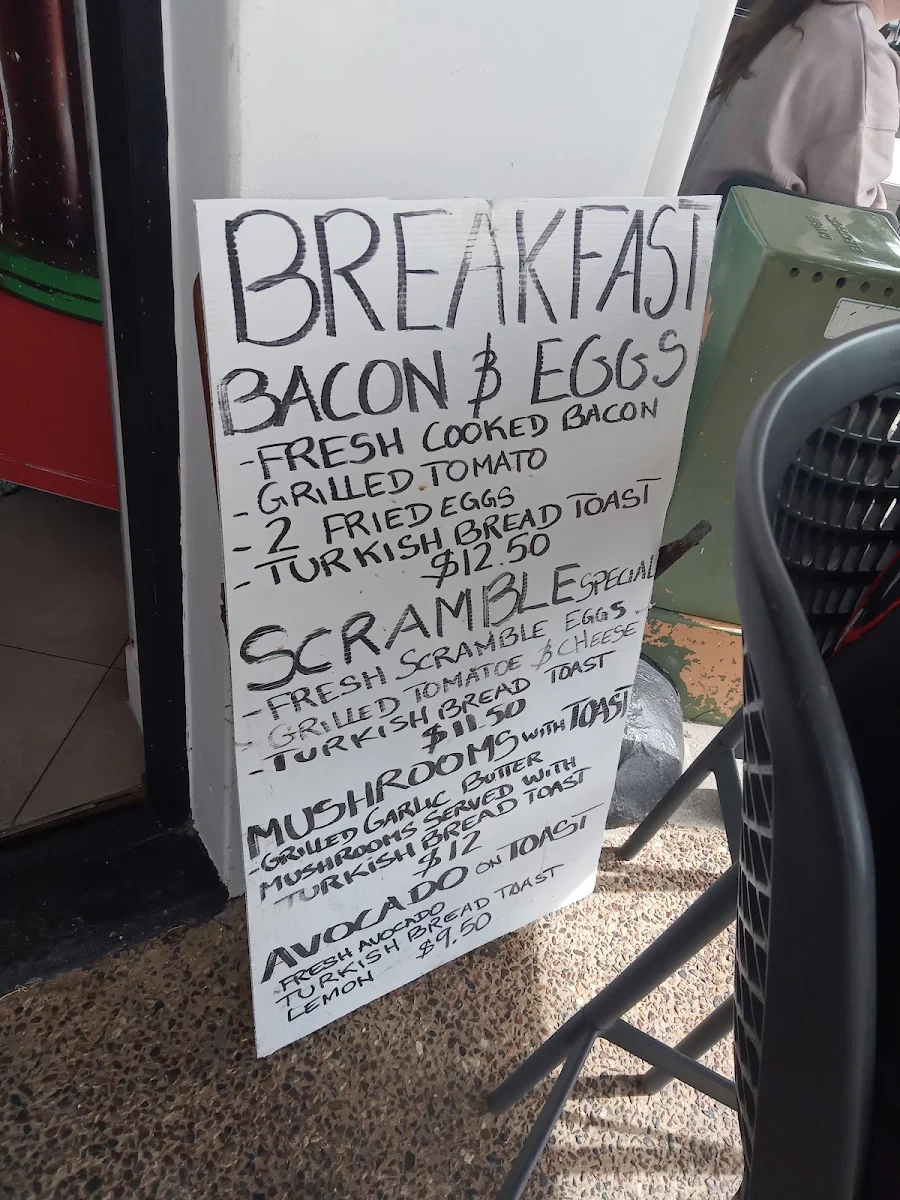 BREAKFAST
BACON & EGGS
-FRESH COOKED BACON
-GRILLED TOMATO
- 2 FRIED EGGS
- TURKISH BREAD TOAST
$12.50
SCRAMBLE SPECIAL
-FRESH SCRAMBLE EGGS
- GRILLED TOMATOE & CHEESE
-TURKISH BREAD TOAST
$11.50
MUSHROOMS WITH TOAST
-GRILLED GARLIC BUTTER
MUSHROOMS SERVED WITH
TURKISH BREAD TOAST
$12
AVOCADO ON TOAST
FRESH AVOCADO
TURKISH BREAD TOAST
LEMON $9.50